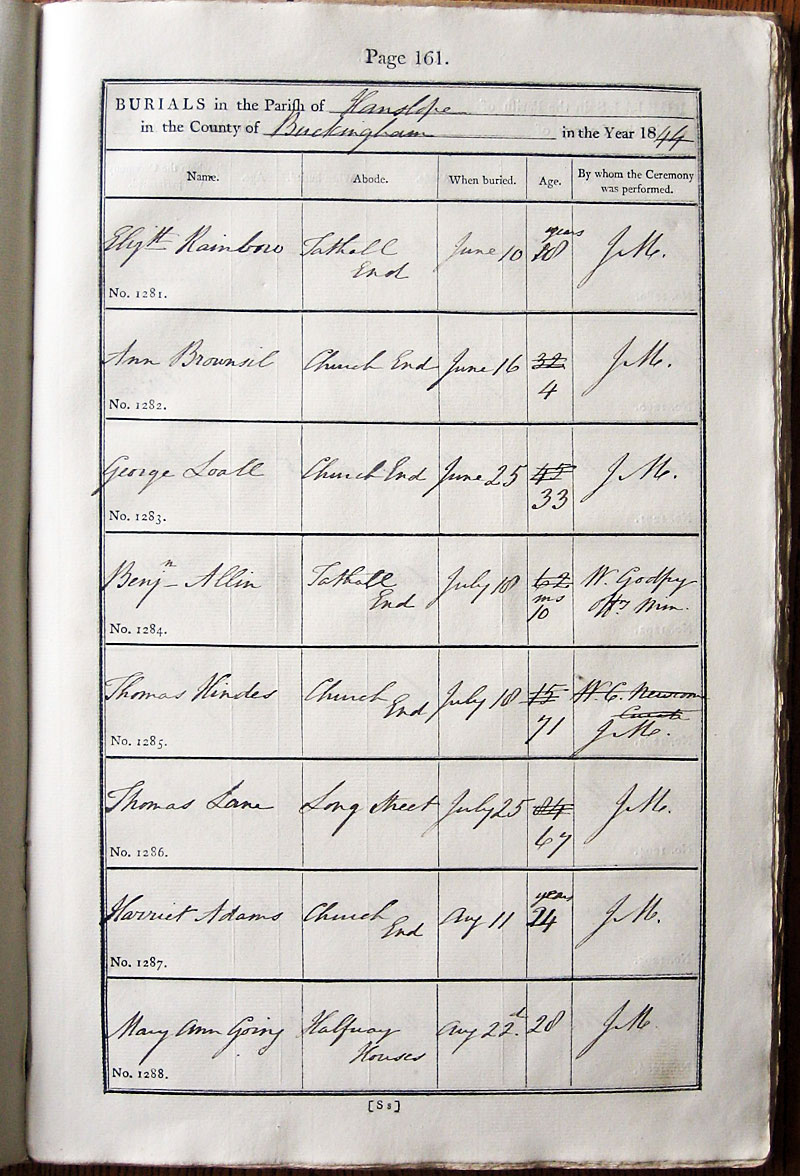 Page 161.
BURIALS in the Parish of Hanslope
in the County of Buckingham in the Year 1844
Name. Abode. When buried. Age. By whom the Ceremony was performed.
years
Elizth Rainbow Tathall End June 10 28 J M.
No. 1281.
Ann Brownsil Church End June 16 32 J M.
4
No. 1282.
George Loall Church End June 25 45 J M.
33
No. 1283.
Benjn Allin Tathall End July 18 62 W. Godfry
ms
10
offg Min.
No. 1284.
Thomas Hindes Church End July 18 15 W. C. Newsom
Curate
71 J M.
No. 1285.
Thomas Lane Long Street July 25 84 J M.
67
No. 1286.
years
Harriet Adams Church End Aug 11 24 J M.
No. 1287.
Mary Ann Going Halfway Houses Aug 22d. 28 J M.
No. 1288.
[Ss]